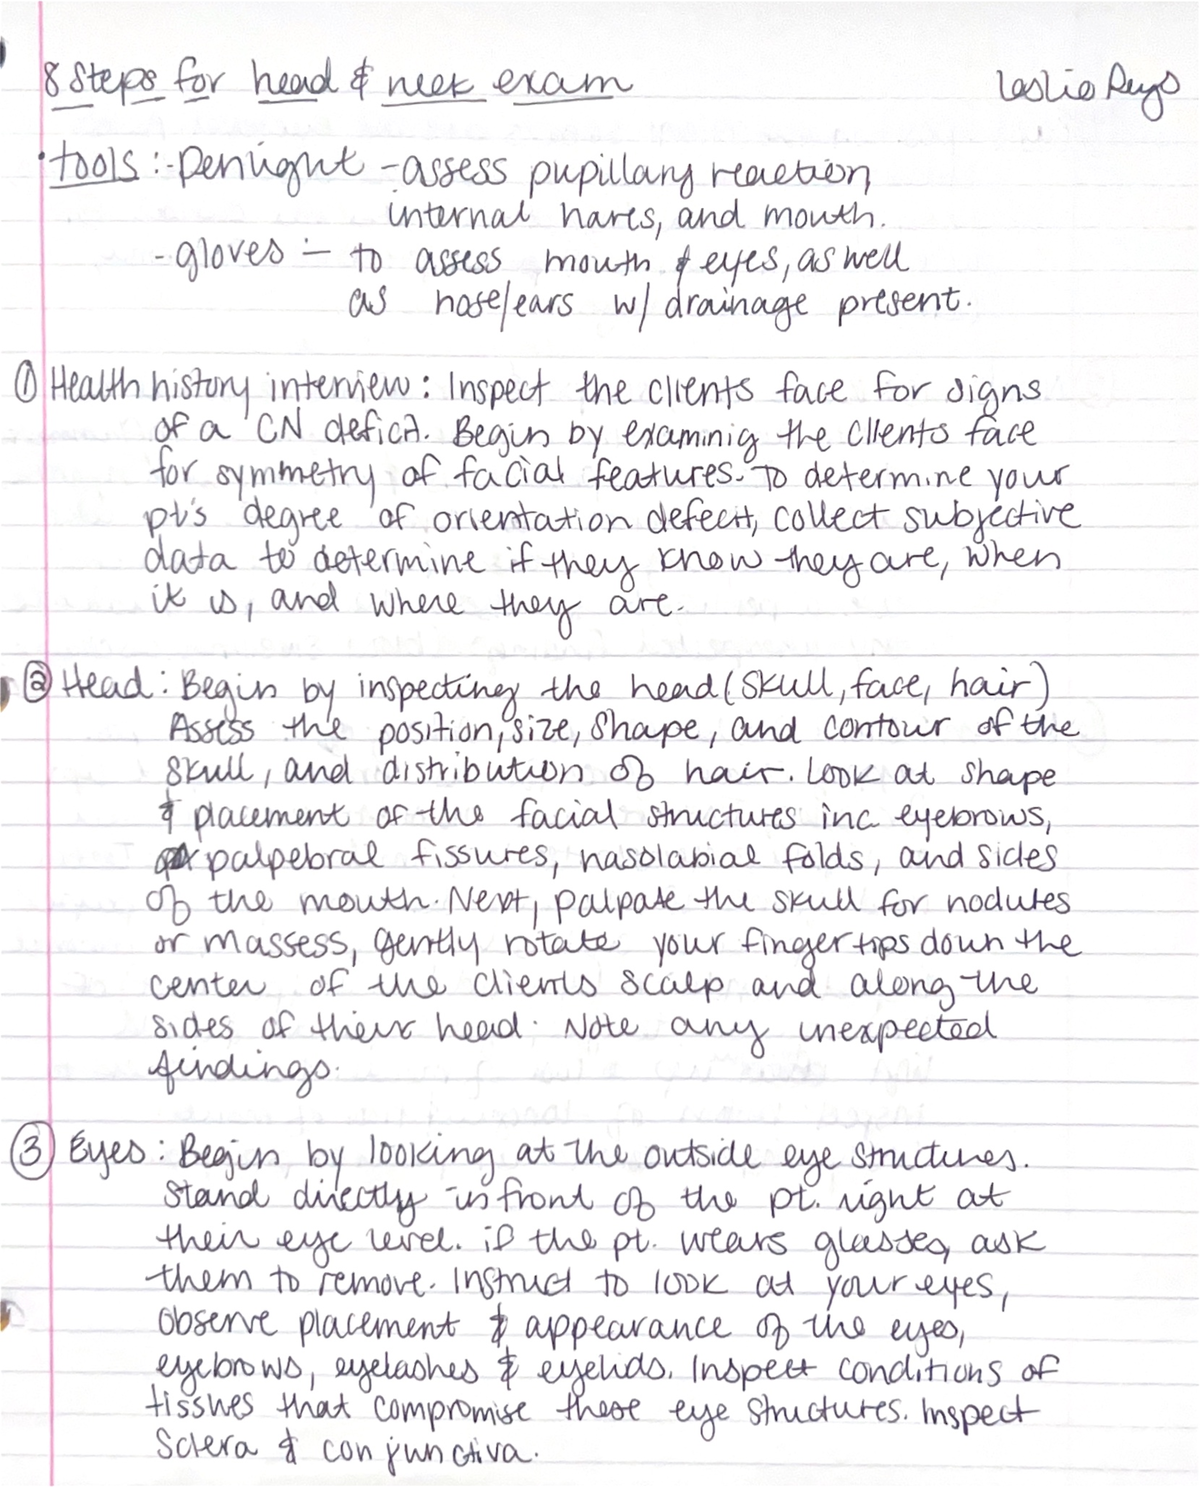 8 Steps for head & neck exam
Leslie Reyes
• tools : - Penlight - assess pupillary reaction,
internal nares, and mouth.
- gloves :- to assess mouth & eyes, as well
as nose/ears w/ drainage present.
① Health history interview : Inspect the clients face for signs
of a CN deficit. Begin by examinig the clients face
for symmetry of facial features. To determine your
pt's degree of orientation defecit, collect subjective
data to determine if they know they are, when
it is, and where they are.
② Head : Begin by inspecting the head (skull, face, hair)
Assess the position, size, shape, and contour of the
skull, and distribution of hair. Look at shape
& placement of the facial structures inc eyebrows,
palpebral fissures, nasolabial folds, and sides
of the mouth. Next, palpate the skull for nodules
or massess, gently rotate your fingertips down the
center of the clients scalp and along the
sides of their head. Note any unexpected
findings.
③ Eyes : Begin by looking at the outside eye structures.
Stand directly in front of the pt. right at
their eye level. if the pt. wears glasses, ask
them to remove. Instruct to look at your eyes,
observe placement & appearance of the eyes,
eyebrows, eyelashes & eyelids. Inspect conditions of
tisshes that compromise these eye structures. Inspect
Sclera & conjunctiva.